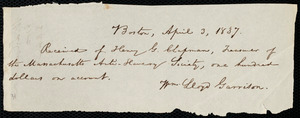 Boston, April 3, 1837.
Received of Henry G. Chapman, Treasurer of
the Massachusetts Anti-Slavery Society, one hundred
dollars on account.
Wm Lloyd Garrison.